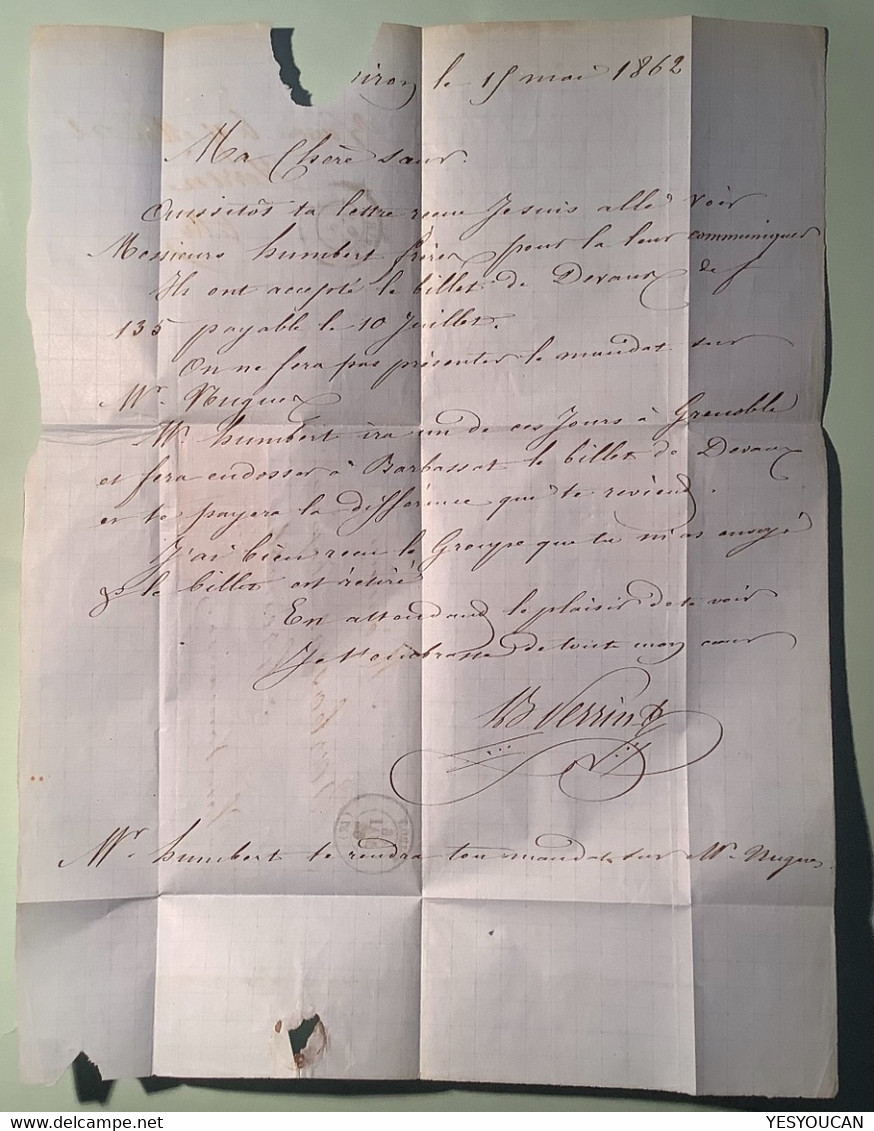 iron le 15 mai 1862
Ma Chère sœur
Aussitôt ta lettre recue Je suis allé voir
Messieurs humbert frères pour la leur communiquer
Ils ont accepté le billet de Devaux de f
135 payable le 10 Juillet.
On ne fera pas présenter le mandat sur
Mr. Nugues
Mr humbert ira un de ces Jours à Grenoble
et fera endosser à Barbassat le billet de Devaux
et te payera la différence que te reviend.
J'ai bien recu le Groupe que tu m'as envoyé
& le billet est retiré
En attendand le plaisir de te voir
Je t'embrasse de tout mon cœur
B Verrin
Mr. humbert te rendra ton mandat sur Mr. Nugues
YESYOUCAN